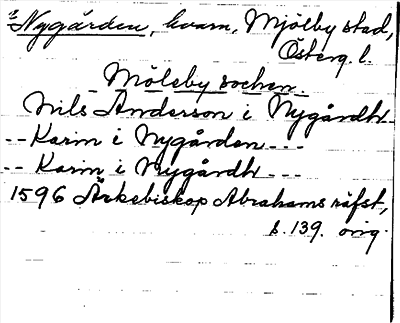 Nygården, kvarn, Mjölby stad,
Österg. l.
Möleby socken.
Nils Anderson i Nygårdh--
-- Karin i Nygården ---
-- Karin i Nygårdh ---
1596 Ärkebiskop Abrahams räfst,
s. 139. orig.